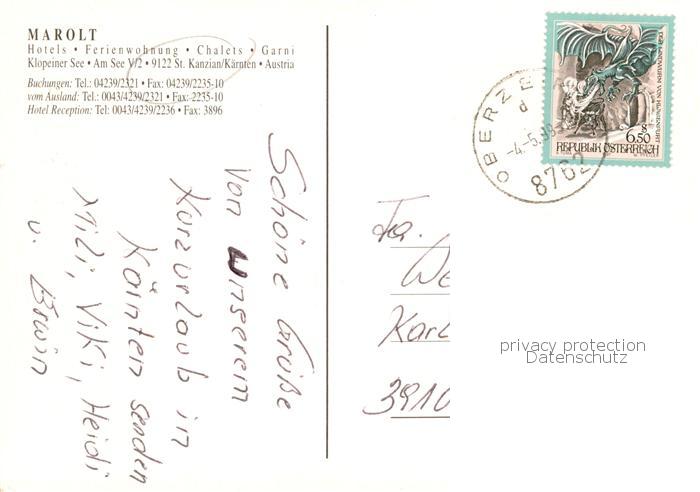 MAROLT
Hotels • Ferienwohnung • Chalets • Garni
Klopeiner See • Am See V/2 • 9122 St. Kanzian/Kärnten • Austria
Buchungen: Tel.: 04239/2321 • Fax: 04239/2235-10
vom Ausland: Tel.: 0043/4239/2321 • Fax: 2235-10
Hotel Reception: Tel: 0043/4239/2236 • Fax: 3896
Schöne Grüße
von unserem
Kurzurlaub in
Kärnten senden
Mili, Viki, Heidi
u. Erwin
DER LINDWURM VON KLAGENFURT
S
6.50
REPUBLIK ÖSTERREICH
OBERZE
d
-4.-5.99
8762
Fa.
We
Karl
3910
privacy protection
Datenschutz